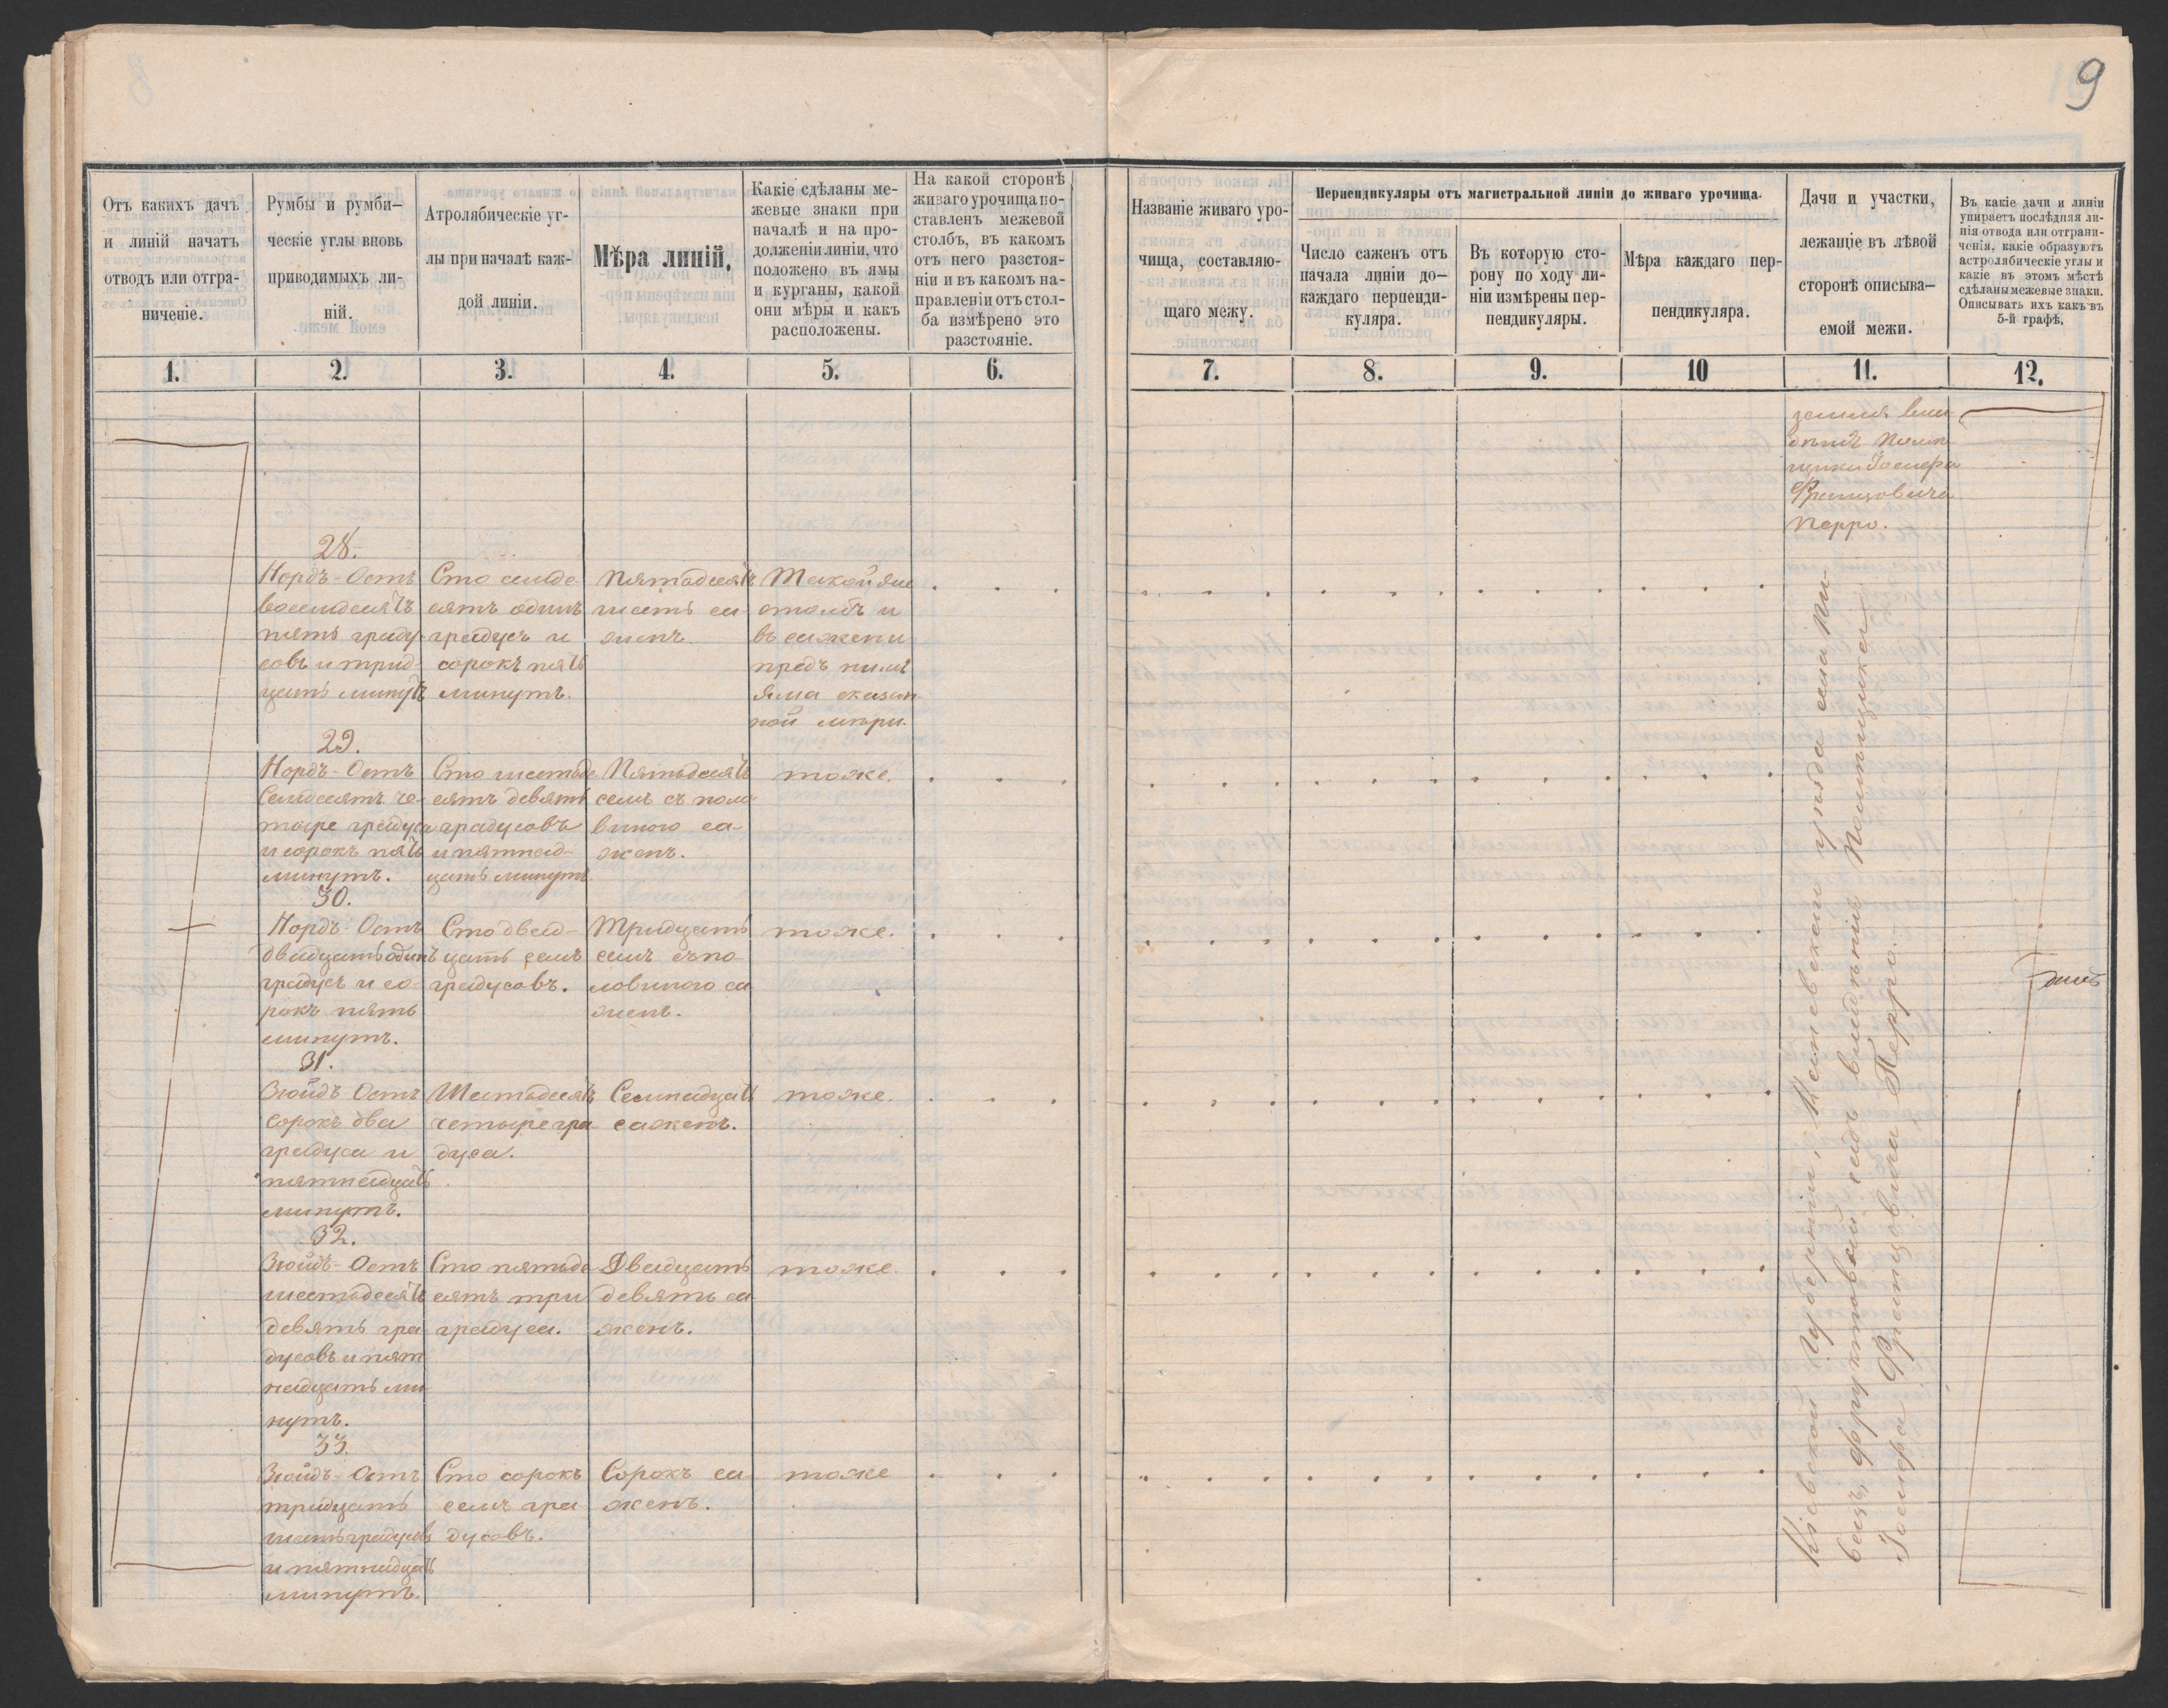 9
Отъ какихъ дачъ
и линій начатъ
отводъ или отгра-
ниченіе.
Румбы и румби-
ческіе углы вновь
приводимыхъ ли-
ній.
Атролябическіе уг-
лы при началѣ каж-
дой линіи.
Мѣра линій.
Какіе сдѣланы ме-
жевые знаки при
началѣ и на про-
долженіи линіи, что
положено въ ямы
и курганы, какой
они мѣры и какъ
расположены.
На какой сторонѣ
живаго урочища по-
ставленъ межевой
столбъ, въ какомъ
отъ него разстоя-
ніи и въ какомъ на-
правленіи отъ стол-
ба измѣрено это
разстояніе.
Названіе живаго уро-
чища, составляю-
щаго межу.
Перпендикуляры отъ магистральной линіи до живаго урочища.
Число саженъ отъ
начала линіи до-
каждаго перпенди-
куляра.
Въ которую сто-
рону по ходу ли-
ніи измѣрены пер-
пендикуляры.
Мѣра каждаго пер-
пендикуляра.
Дачи и участки,
лежащіе въ лѣвой
сторонѣ описыва-
емой межи.
Въ какіе дачи и линіи
упираетъ послѣдняя ли-
нія отвода или отграни-
ченія, какіе образуютъ
астролябическіе углы и
какіе въ этомъ мѣстѣ
сдѣланы межевые знаки.
Описывать ихъ какъ въ
5-й графѣ.
1.
2.
3.
4.
5.
6.
7.
8.
9.
10
11.
12.
28.
Нордъ-Остъ
восемдесятъ
пять граду-
совъ и трид-
цать минутъ
Сто семде-
сятъ одинъ
градусъ и
сорокъ пять
минутъ.
Пятдесятъ
шесть са-
женъ
Такой же
столбъ и
въ сажени
предъ нимъ
яма сказан-
ной мѣри.
29.
Нордъ-Остъ
Семдесятъ че-
тыре градуса
и сорокъ пять
минутъ.
Сто шестьде
сятъ девять
градусовъ
и пятнад-
цать минутъ
Пятьдесятъ
семъ съ поло
виною са-
женъ.
тоже.
30.
Нордъ-Остъ
двадцать одинъ
градусъ и со-
рокъ пять
минутъ.
Сто двад-
цать семъ
градусовъ.
Тридцать
семъ съ по-
ловиною са
женъ.
тоже.
31.
Зюйдъ Остъ
сорокъ два
градуса и
пятнадцать
минутъ.
Шестьдесятъ
четыре гра
дуса.
Семнадцать
саженъ.
тоже.
32.
Зюйдъ-Остъ
шестьдесятъ
девять гра
дусовъ и пят
надцать ми
нутъ.
Сто пятьде
сятъ три
градуса.
Двадцать
девять са
женъ.
тоже.
33.
Зюйдъ-Остъ
тридцать
шесть градусовъ
и пятнадцать
минутъ.
Сто сорокъ
семъ гра
дусовъ.
Сорокъ са-
женъ.
тоже
земля вла
дѣнія Помѣ
щика Іосифа
Францовича
Перро.
Кіевской Губерніи,
уѣзда села Пи-
фруктовый садъ владѣнія Помѣщика
Іосифа Францовича Перро.